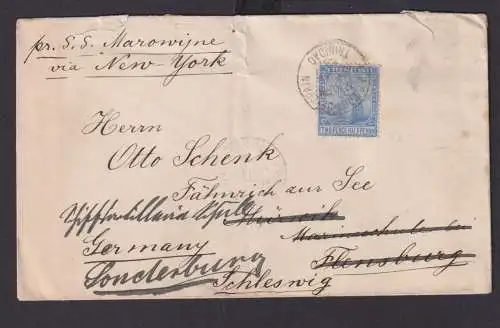 pr. S.S. Marowijne
via New-York
TRINIDAD
TWO PENCE HALFPENNY
Herrn
Otto Schenk
Fähnrich zur See
Mürwik
Marineschule bei
Germany Flensburg
Sonderburg
Schleswig